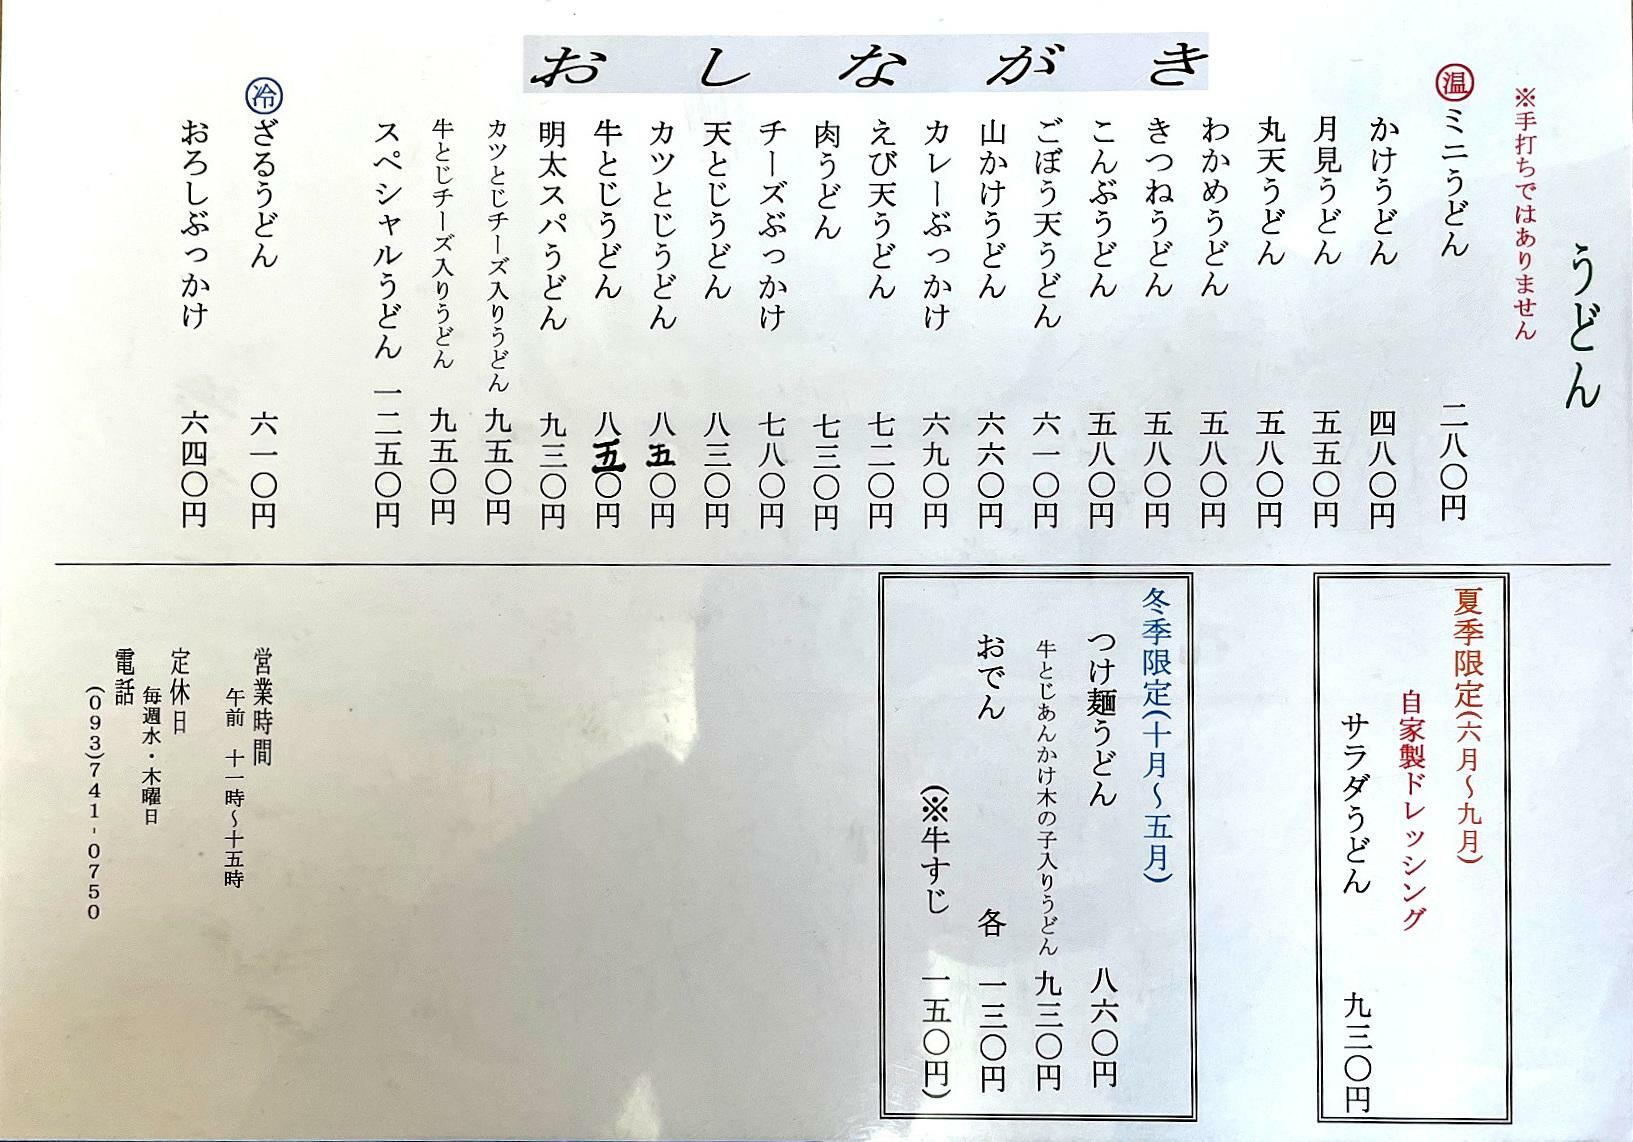 おしながき
うどん
※手打ちではありません
温 ミニうどん 二八〇円
かけうどん 四八〇円
月見うどん 五五〇円
丸天うどん 五八〇円
わかめうどん 五八〇円
きつねうどん 五八〇円
こんぶうどん 五八〇円
ごぼう天うどん 六一〇円
山かけうどん 六六〇円
カレーぶっかけ 六九〇円
えび天うどん 七二〇円
肉うどん 七三〇円
チーズぶっかけ 七八〇円
天とじうどん 八三〇円
カツとじうどん 八五〇円
牛とじうどん 八五〇円
明太スパうどん 九三〇円
カツとじチーズ入りうどん 九五〇円
牛とじチーズ入りうどん 九五〇円
スペシャルうどん 一二五〇円
冷 ざるうどん 六一〇円
おろしぶっかけ 六四〇円
夏季限定(六月～九月)
自家製ドレッシング
サラダうどん 九三〇円
冬季限定(十月～五月)
つけ麺うどん 八六〇円
牛とじあんかけ木の子入りうどん 九三〇円
おでん 各 一三〇円
(※牛すじ 一五〇円)
営業時間
午前 十一時～十五時
定休日
毎週水・木曜日
電話
(093)741-0750